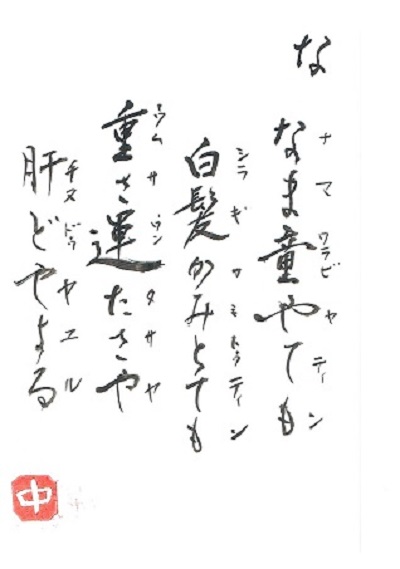 な
ナマワラビヤティン
なま童やても
シラギカミトゥティン
白髪かみとても
ウムサウンタサヤ
重さ運たさや
チムドゥヤユル
肝どやよる
中